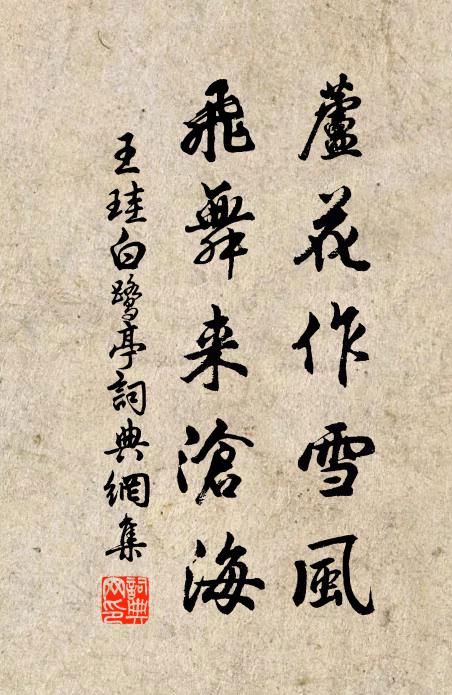 蘆花作雪風
飛舞来滄海
王珪白鷺亭詞典網集
詞典网印